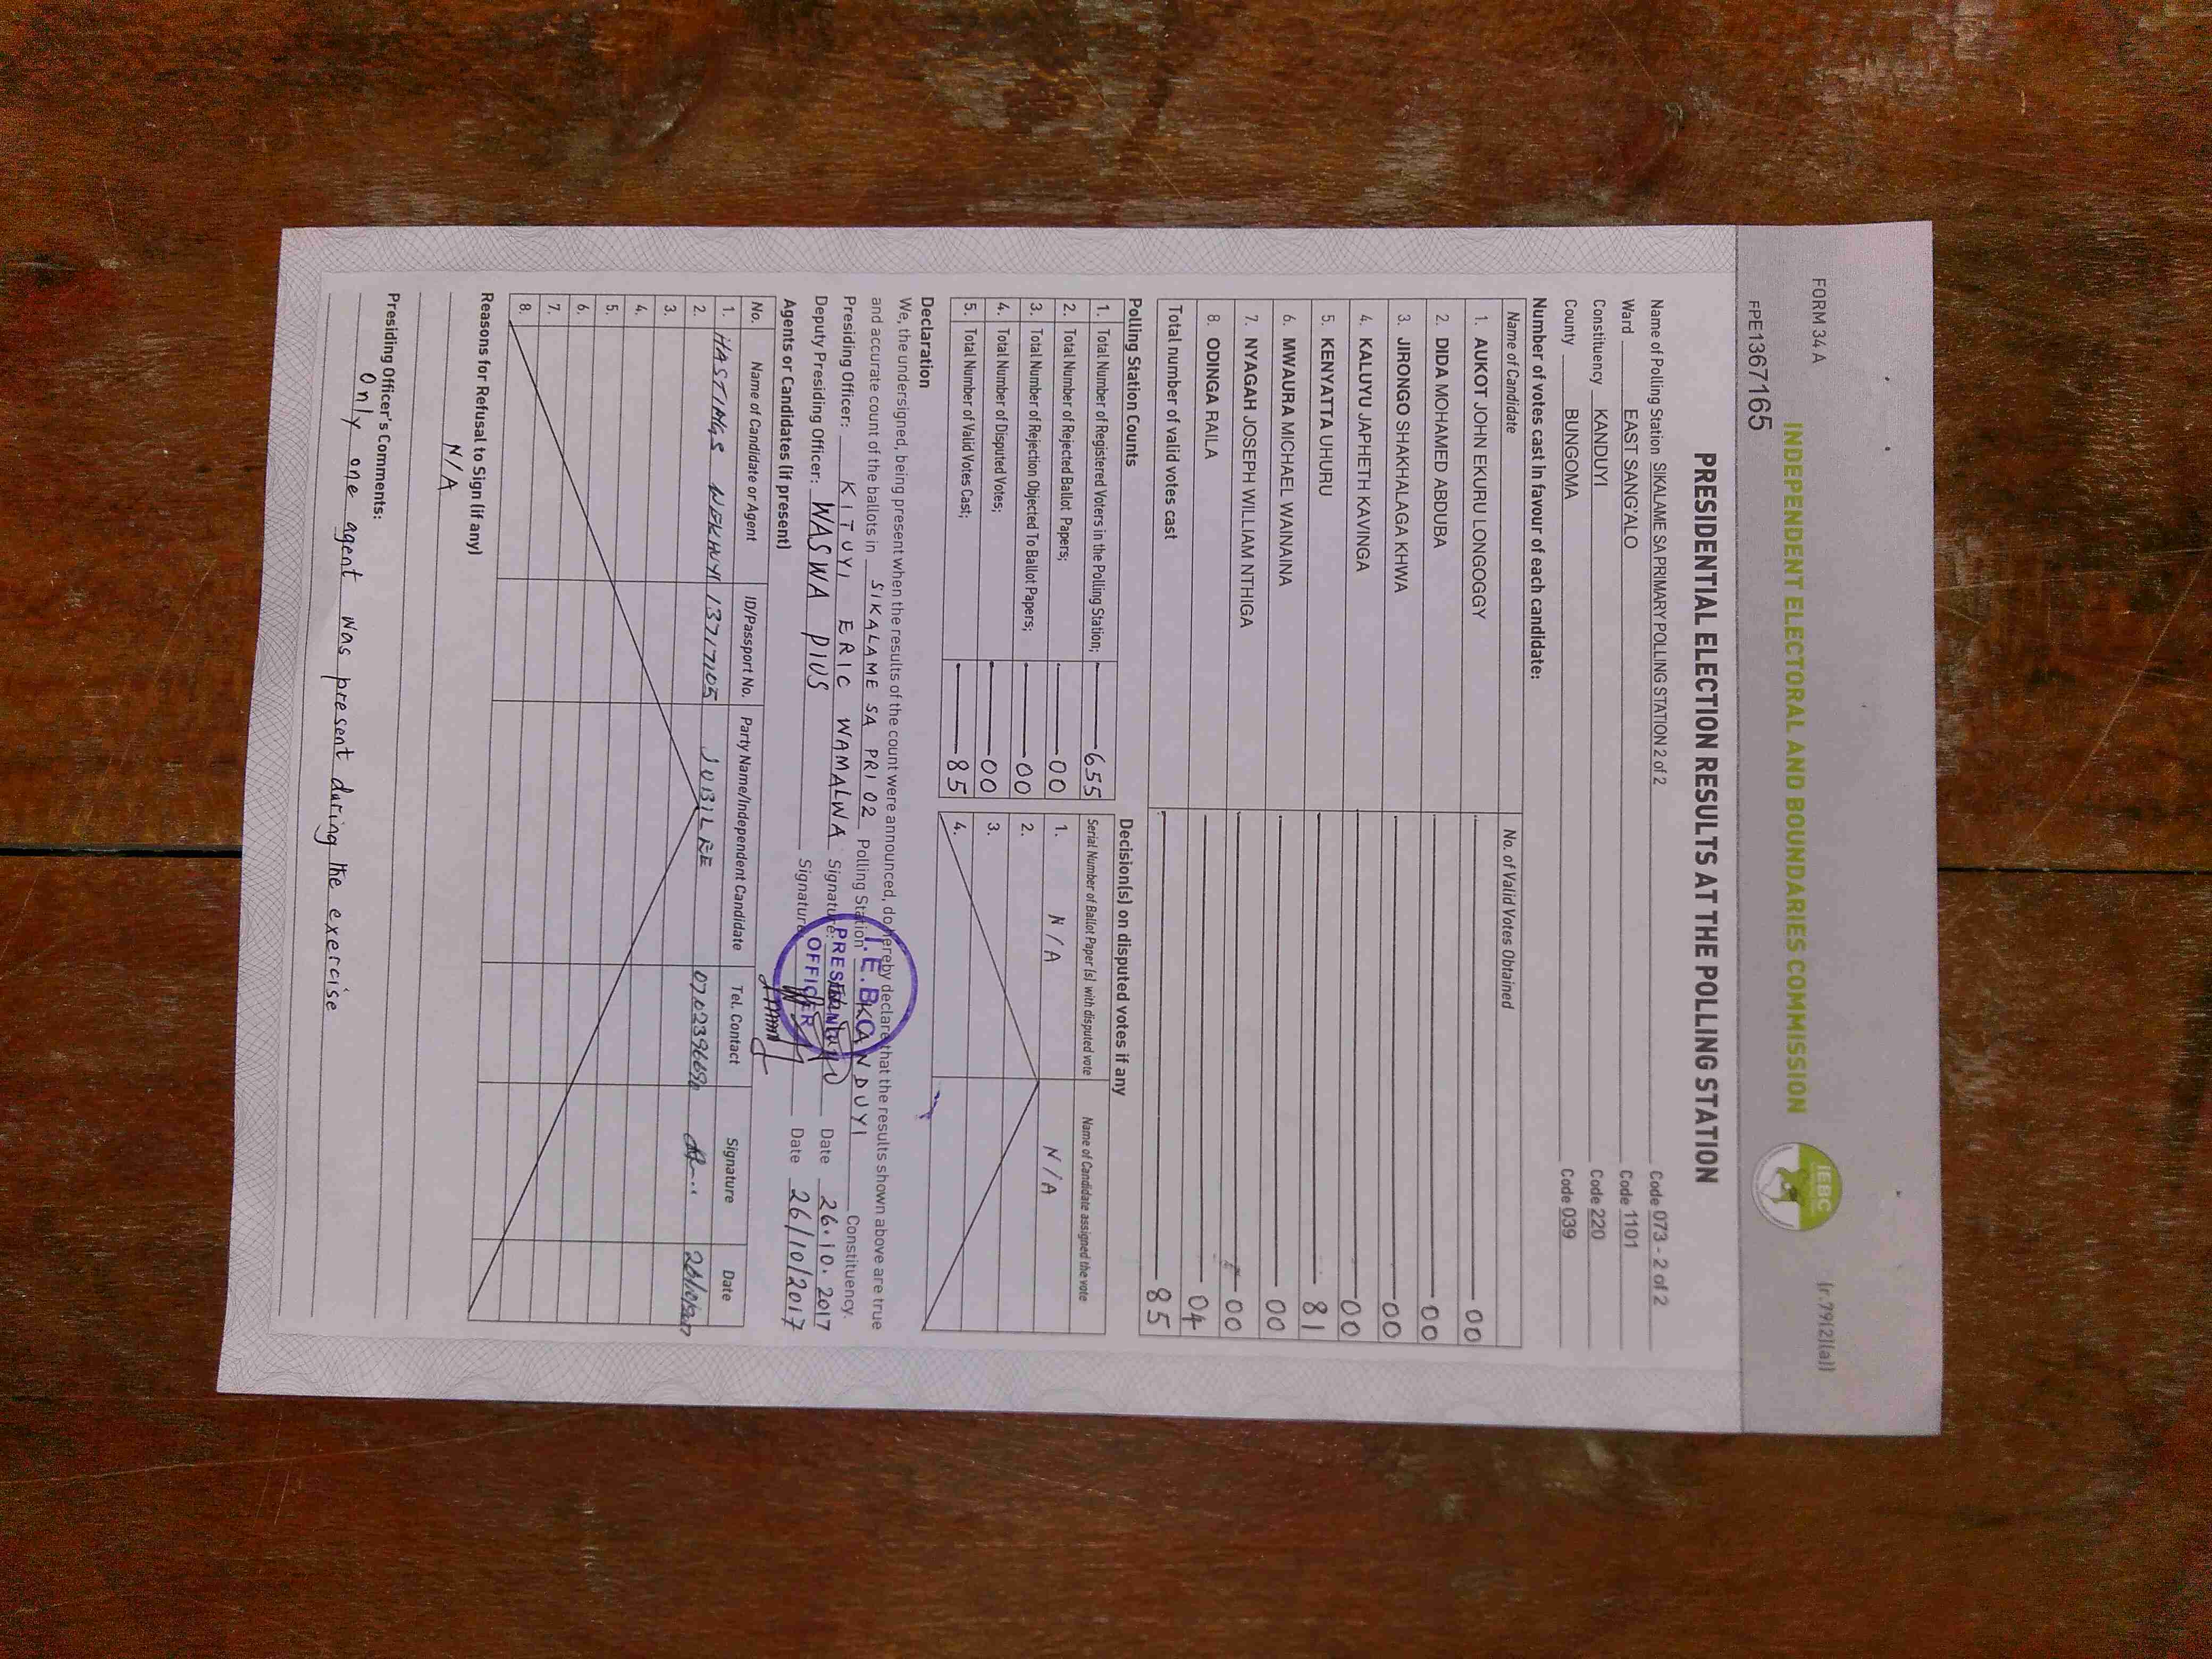 FORM 34 A (r.79(2)(a))
INDEPENDENT ELECTORAL AND BOUNDARIES COMMISSION
IEBC
FPE1367165
PRESIDENTIAL ELECTION RESULTS AT THE POLLING STATION
Name of Polling Station SIKALAME SA PRIMARY POLLING STATION 2 of 2 Code 073 - 2 of 2
Ward EAST SANG'ALO Code 1101
Constituency KANDUYI Code 220
County BUNGOMA Code 039
Number of votes cast in favour of each candidate:
Name of Candidate No. of Valid Votes Obtained
1. AUKOT JOHN EKURU LONGOGGY 00
2. DIDA MOHAMED ABDUBA 00
3. JIRONGO SHAKHALAGA KHWA 00
4. KALUYU JAPHETH KAVINGA 00
5. KENYATTA UHURU 81
6. MWAURA MICHAEL WAINAINA 00
7. NYAGAH JOSEPH WILLIAM NTHIGA 00
8. ODINGA RAILA 04
Total number of valid votes cast 85
Polling Station Counts
1. Total Number of Registered Voters in the Polling Station; 655
2. Total Number of Rejected Ballot Papers; 00
3. Total Number of Rejection Objected To Ballot Papers; 00
4. Total Number of Disputed Votes; 00
5. Total Number of Valid Votes Cast; 85
Decision(s) on disputed votes if any
Serial Number of Ballot Paper (s) with disputed vote Name of Candidate assigned the vote
1. N/A N/A
2.
3.
4.
Declaration
We, the undersigned, being present when the results of the count were announced, do hereby declare that the results shown above are true
and accurate count of the ballots in SIKALAME SA PRI 02 Polling Station KANDUYI Constituency.
Presiding Officer: KITUYI ERIC WAMALWA Signature: Date 26.10.2017
Deputy Presiding Officer: WASWA PIUS Signature Date 26/10/2017
I.E.B.C
PRESIDING
OFFICER
Agents or Candidates (if present)
No. Name of Candidate or Agent ID/Passport No. Party Name/Independent Candidate Tel. Contact Signature Date
1. HASTINGS WEKHUYI 13717105 JUBILEE 26/10/2017
2.
3.
4.
5.
6.
7.
8.
Reasons for Refusal to Sign (if any)
N/A
Presiding Officer's Comments:
only one agent was present during the exercise